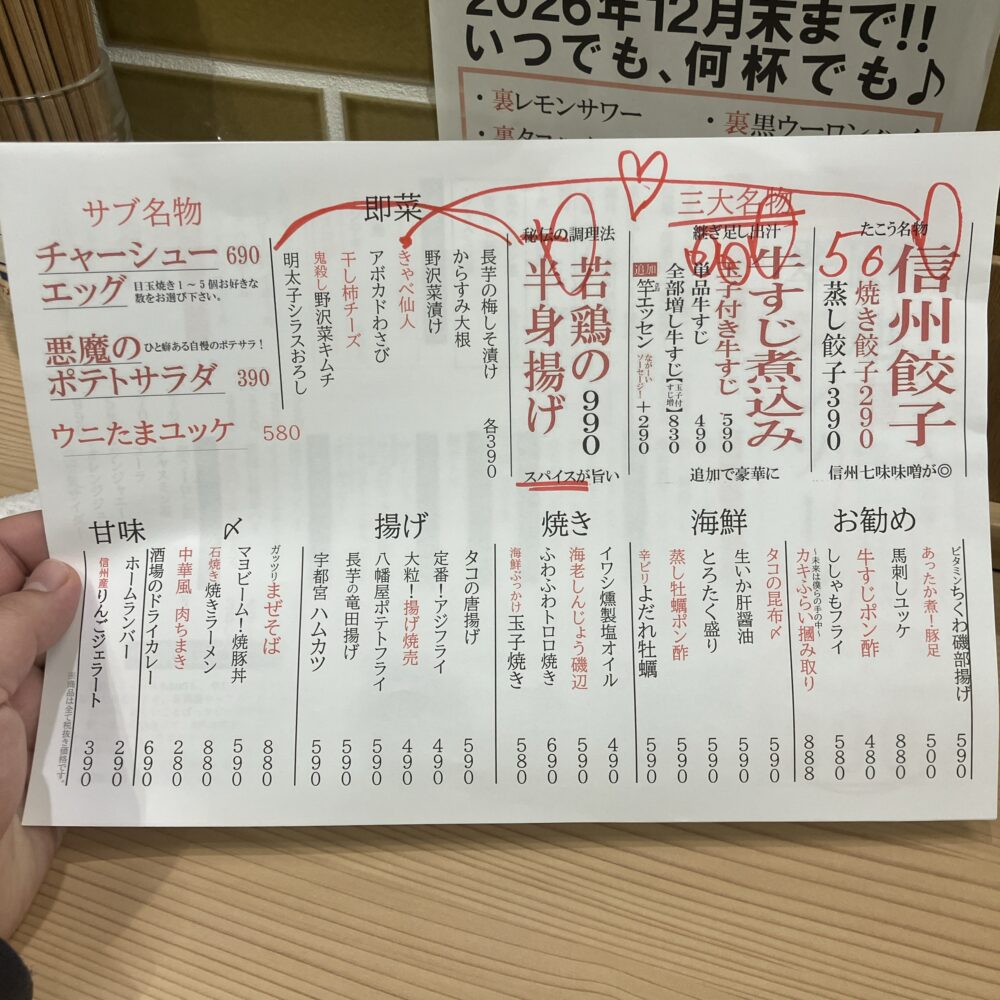 2026年12月末まで!!
いつでも、何杯でも♪
・裏レモンサワー
・裏黒ウーロンハイ
三大名物
たこう名物
信州餃子
56
焼き餃子290
蒸し餃子390
信州七味味噌が◎
継ぎ足し出汁
牛すじ煮込み
玉子付き牛すじ 590
単品牛すじ 490
全部増し牛すじ【玉子付すじ増】830
追加 竿エッセン ながーいソーセージ! +290
追加で豪華に
秘伝の調理法
若鶏の
半身揚げ
990
スパイスが旨い
即菜
長芋の梅しそ漬け
からすみ大根
野沢菜漬け
きゃべ仙人
アボカドわさび
干し柿チーズ
鬼殺し野沢菜キムチ
明太子シラスおろし
各390
サブ名物
チャーシュー 690
エッグ
目玉焼き1~5個お好きな
数をお選び下さい。
悪魔の ひと癖ある自慢のポテサラ!
ポテトサラダ 390
ウニたまユッケ 580
お勧め
ビタミンちくわ磯部揚げ 590
あったか煮!豚足 500
馬刺しユッケ 880
牛すじポン酢 480
ししゃもフライ 580
~未来は僕らの手の中~
カキふらい摑み取り 888
海鮮
タコの昆布〆 590
生いか肝醤油 590
とろたく盛り 590
蒸し牡蠣ポン酢 590
辛ビリよだれ牡蠣 590
焼き
イワシ燻製塩オイル 490
海老しんじょう磯辺 590
ふわふわトロロ焼き 690
海鮮ぶっかけ玉子焼き 580
揚げ
タコの唐揚げ 590
定番!アジフライ 490
大粒!揚げ焼売 490
八幡屋ポテトフライ 590
長芋の竜田揚げ 590
宇都宮 ハムカツ 590
〆
ガッツリまぜそば 880
マヨビーム!焼豚丼 590
石焼き焼きラーメン 880
中華風 肉ちまき 280
酒場のドライカレー 690
甘味
ホームランバー 290
信州産りんごジェラート 390
※商品は全て税抜き価格です。